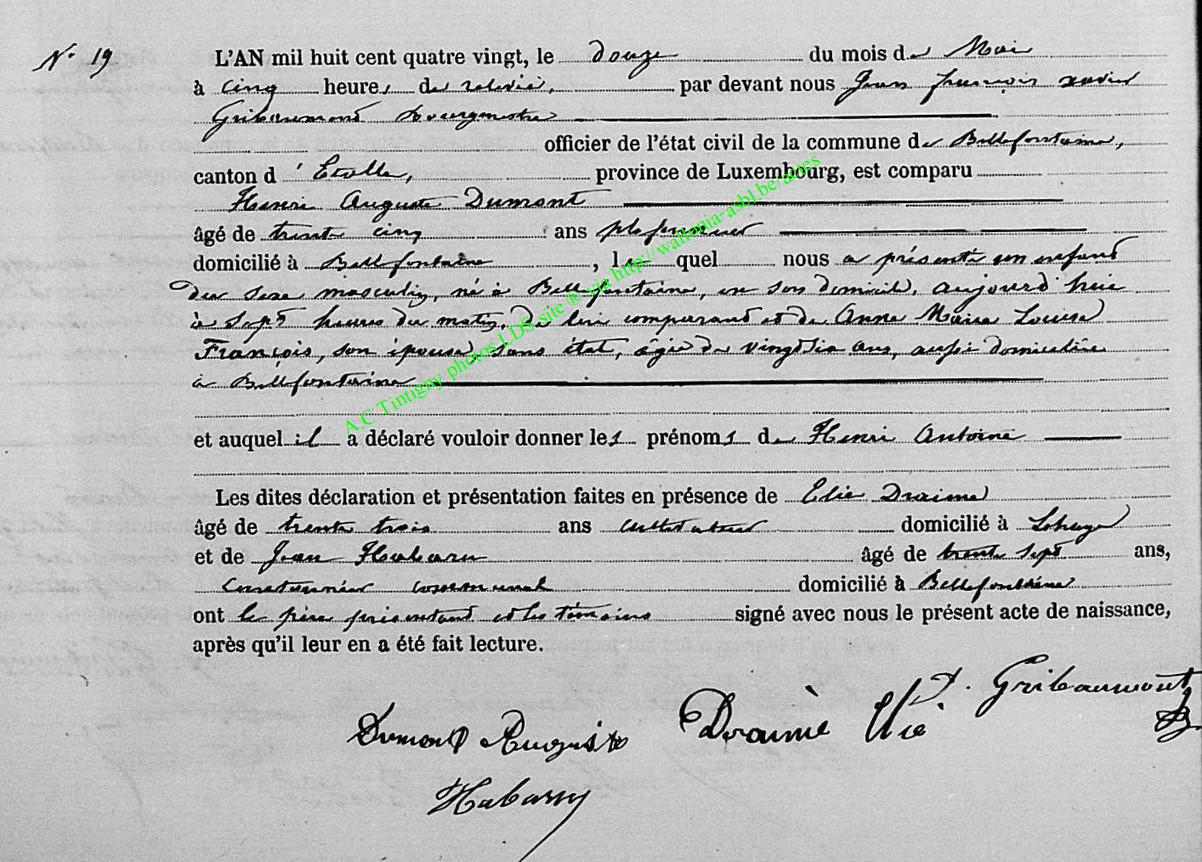 N° 19
L'AN mil huit cent quatre vingt, le douze du mois de Mai
à cinq heures de relevée, par devant nous Jean françois xavier
Gribaumont Bourgmestre
officier de l'état civil de la commune de Bellefontaine,
canton d'Etalle, province de Luxembourg, est comparu
Henri Auguste Dumont
âgé de trente cinq ans plafonneur
domicilié à Bellefontaine, lequel nous a présenté un enfant
du sexe masculin, né à Bellefontaine, en son domicile, aujourd'hui
à sept heures du matin, de lui comparant et de Anne Marie Louise
François, son épouse, sans état, âgée de vingt six ans, aussi domiciliée
à Bellefontaine
et auquel il a déclaré vouloir donner les prénoms de Henri Antoine
Les dites déclaration et présentation faites en présence de Elie Draime
âgé de trente trois ans cultivateur domicilié à Lahage
et de Jean Habary âgé de trente sept ans,
Cantonnier communal domicilié à Bellefontaine
ont le père présentant et les témoins signé avec nous le présent acte de naissance,
après qu'il leur en a été fait lecture.
Gribaumont
Dumont Auguste Draime Elie
Habarry
A.C Tintigny photos LDS site ® via http://wallonia-asbl.be/actes